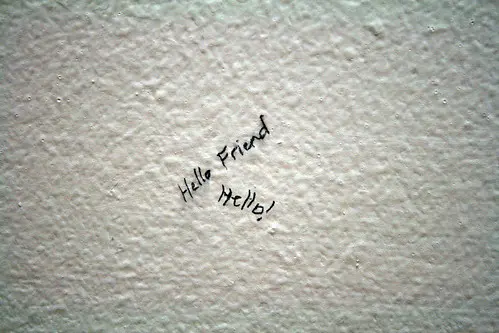 Hello Friend
Hello!